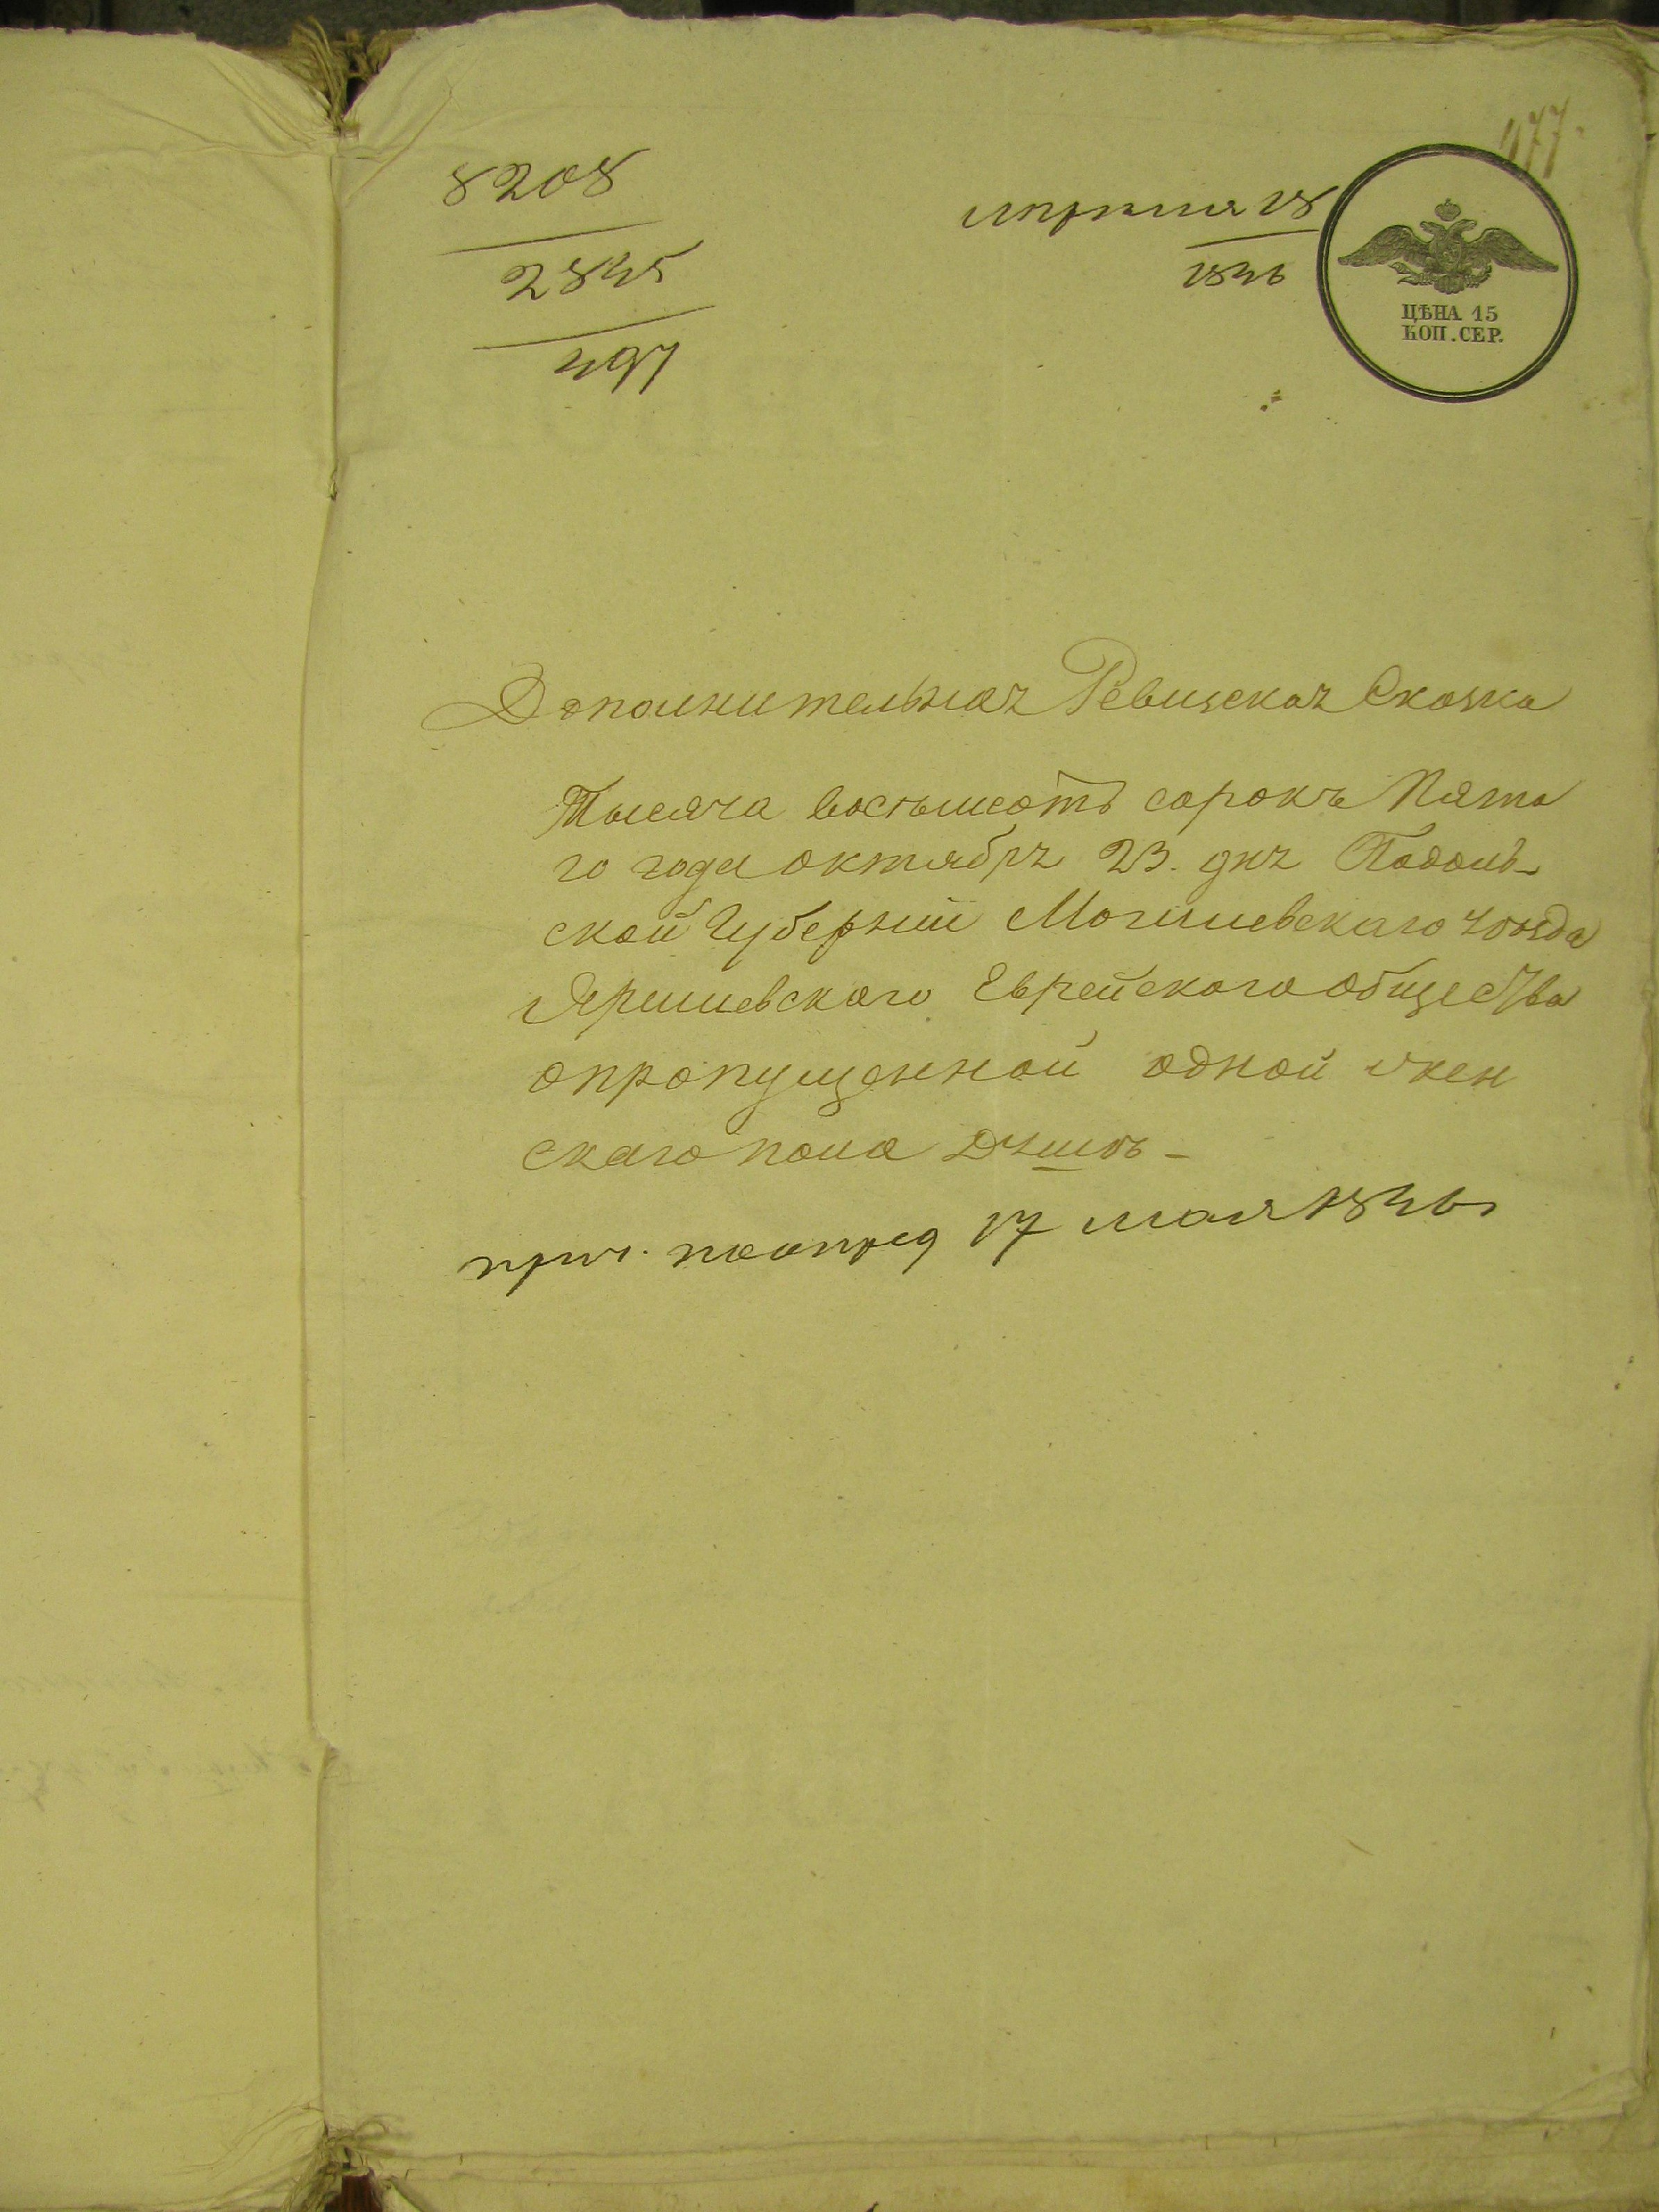 477.
8208
2845
497
апреля 18
1846
ЦѢНА 15
КОП. СЕР.
Дополнительная Ревизская Сказка
Тысяча восьмьсотъ сорокъ Пята
го года октября 23. дня Подоль-
ской Губерніи Могилевскаго уѣзда
Яришевского Еврейского общества
опропущенной одной жен
скаго пола душѣ -
17 мая 1846